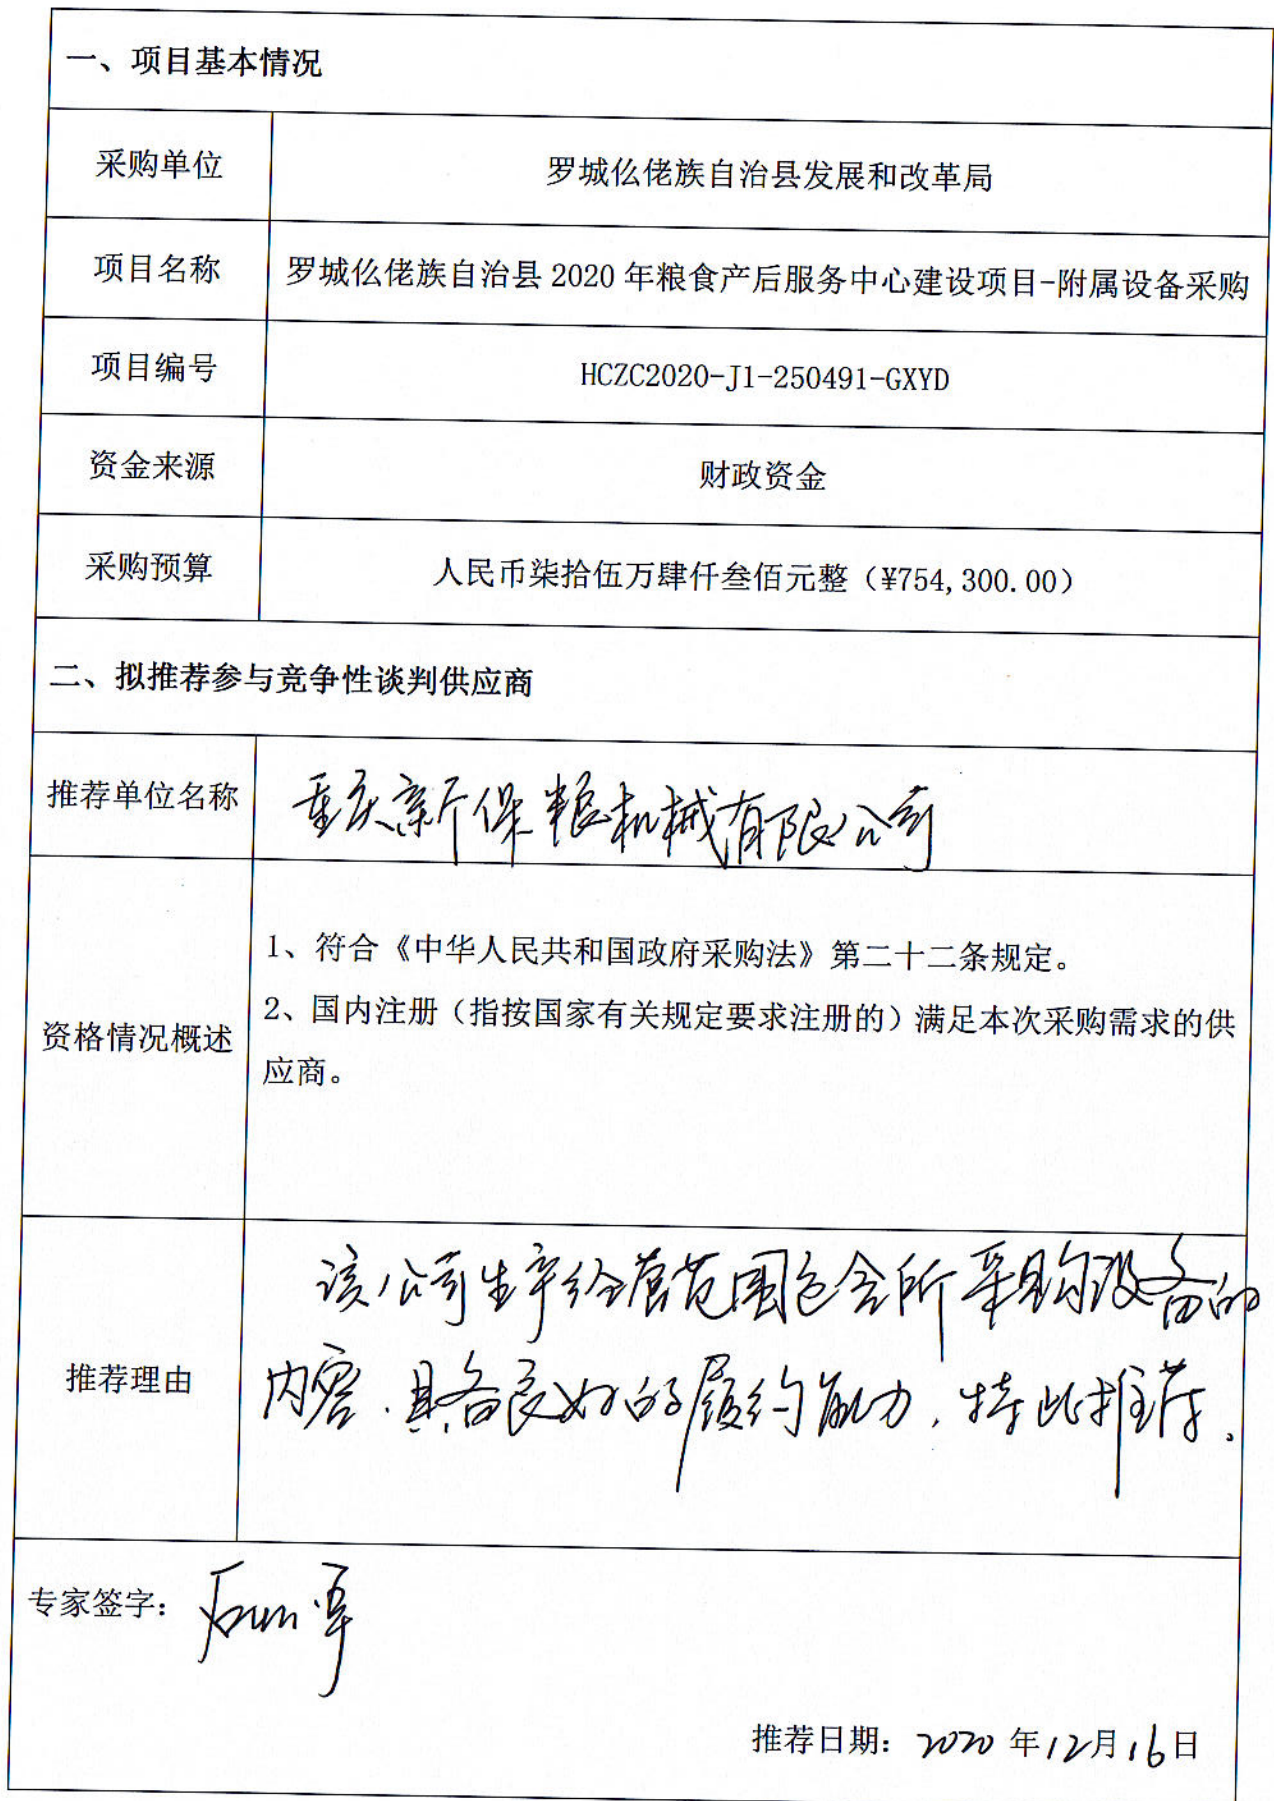 一、项目基本情况
采购单位
罗城仫佬族自治县发展和改革局
项目名称
罗城仫佬族自治县 2020 年粮食产后服务中心建设项目-附属设备采购
项目编号
HCZC2020-J1-250491-GXYD
资金来源
财政资金
采购预算
人民币柒拾伍万肆仟叁佰元整（¥754,300.00）
二、拟推荐参与竞争性谈判供应商
推荐单位名称
重庆新保粮机械有限公司
资格情况概述
1、符合《中华人民共和国政府采购法》第二十二条规定。
2、国内注册（指按国家有关规定要求注册的）满足本次采购需求的供
应商。
推荐理由
该公司生产经营范围包含所采购设备的
内容.具备良好的履约能力,特此推荐.
专家签字：
推荐日期：2020 年12月16日